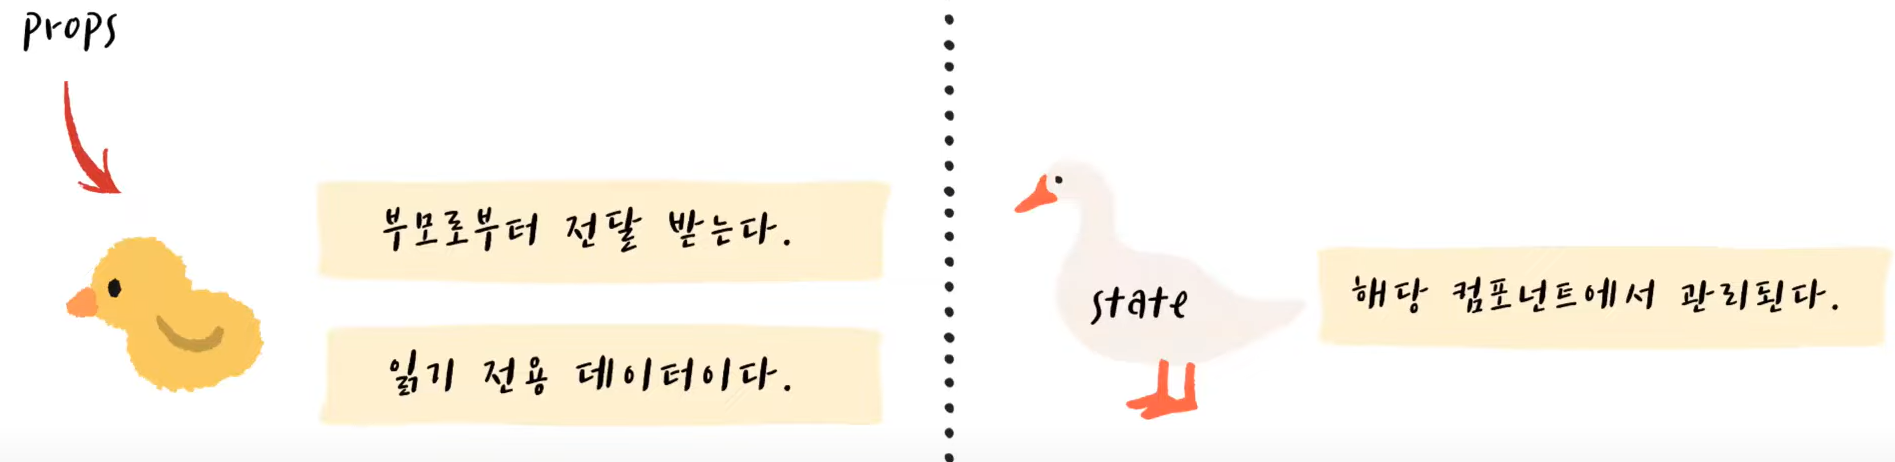 props
부모로부터 전달 받는다.
읽기 전용 데이터이다.
state
해당 컴포넌트에서 관리된다.